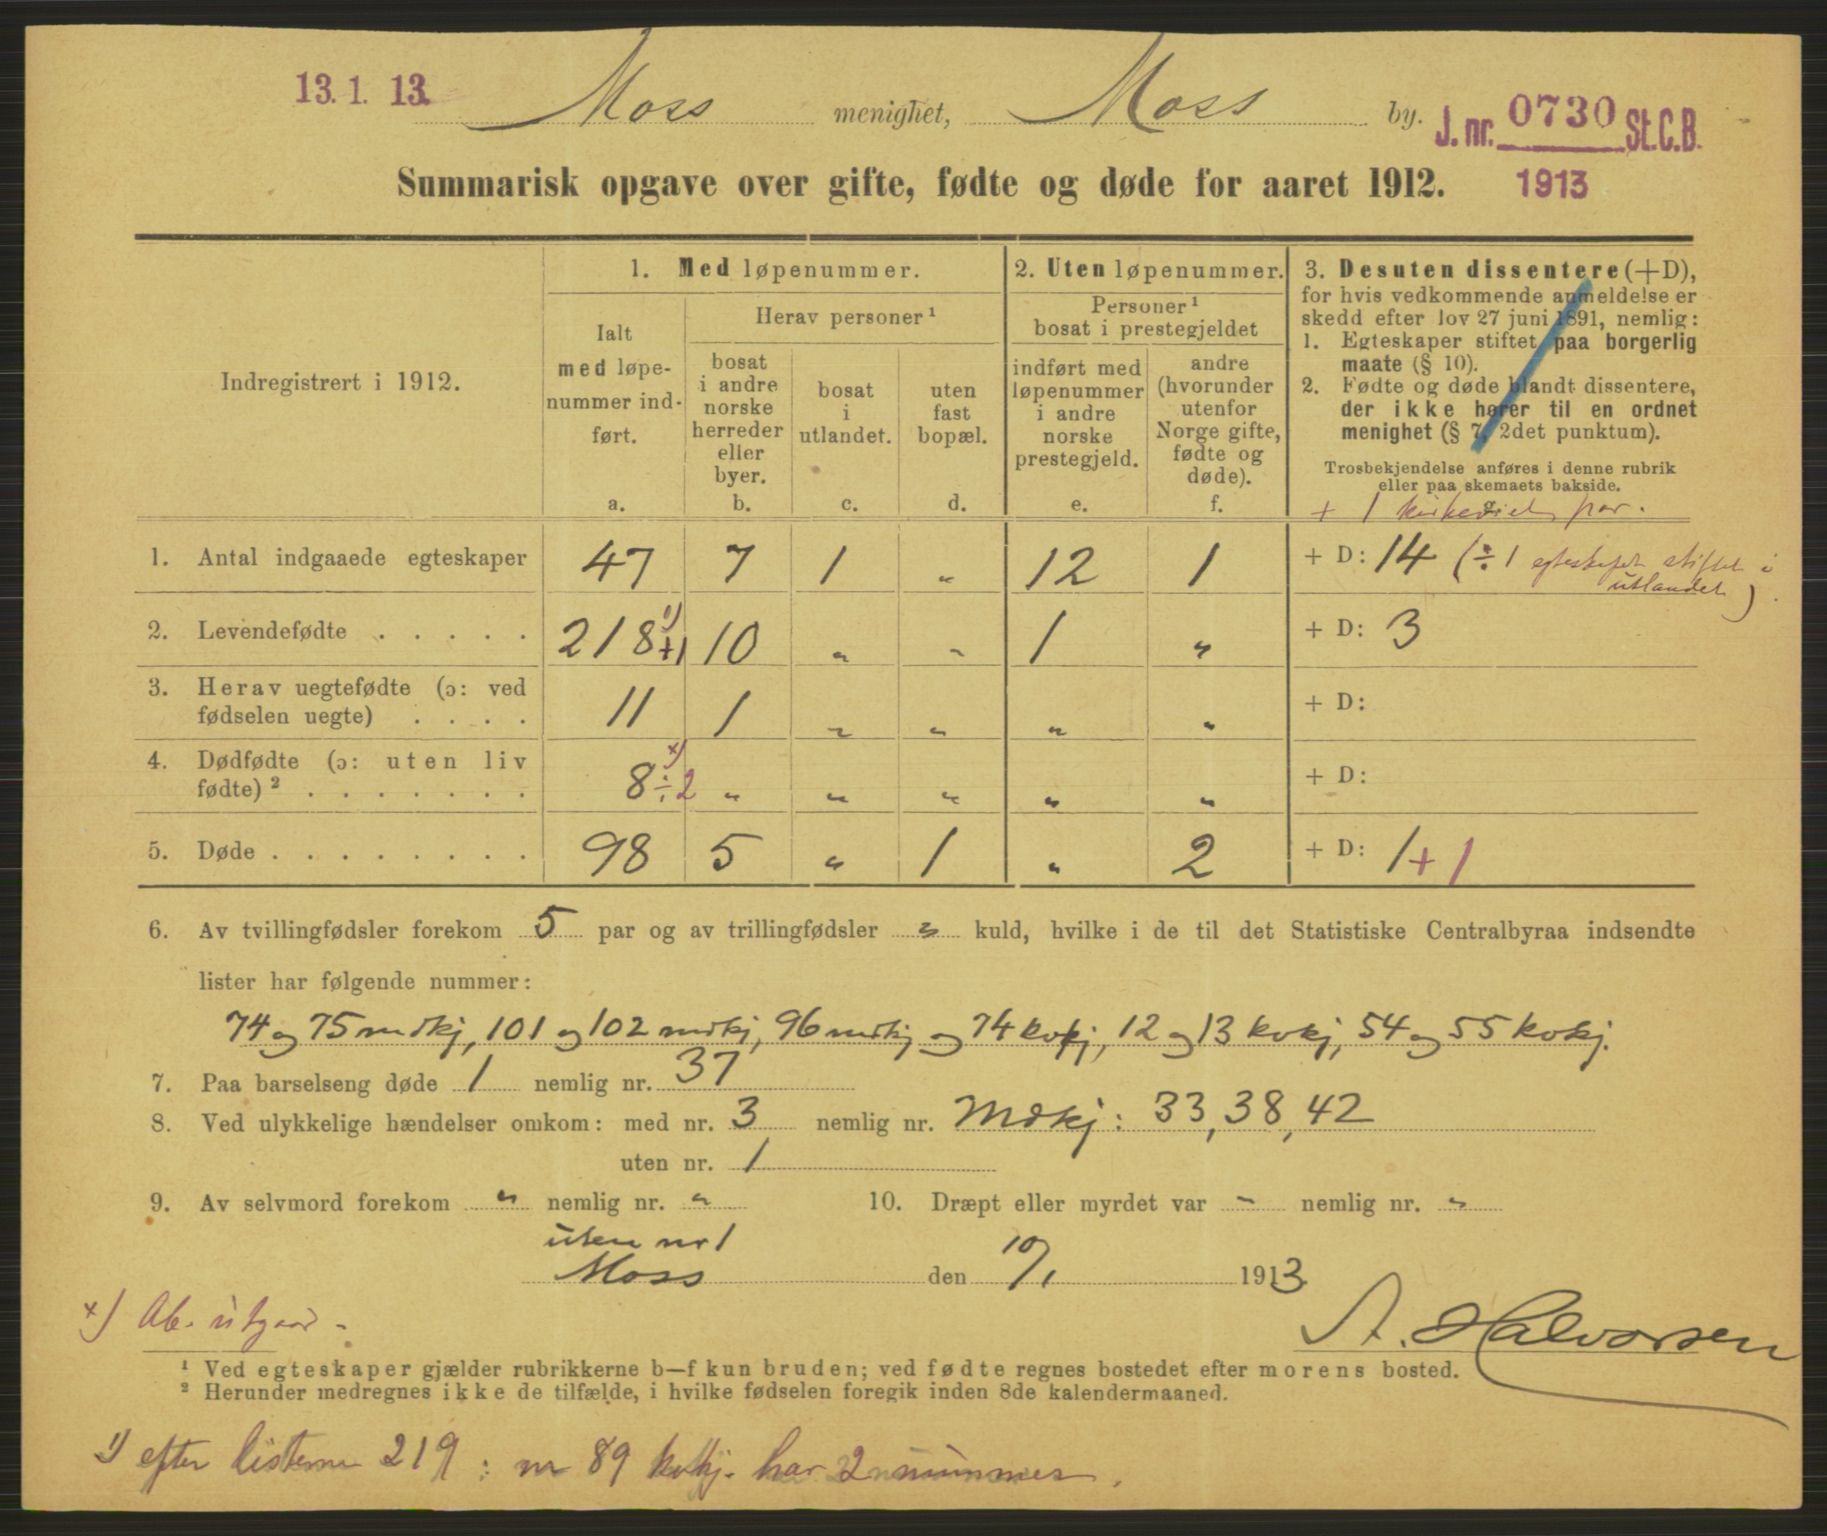 13. 1. 13.
Moss menighet, Moss by.
J. nr. 0730 St.C.B.
1913
Summarisk opgave over gifte, fødte og døde for aaret 1912.
Indregistrert i 1912.
1. Med løpenummer.
Ialt med løpe-nummer ind-ført.
a.
Herav personer ¹
bosat i andre norske herreder eller byer.
b.
bosat i utlandet.
c.
uten fast bopæl.
d.
2. Uten løpenummer.
Personer ¹ bosat i prestegjeldet
indført med løpenummer i andre norske prestegjeld.
e.
andre (hvorunder utenfor Norge gifte, fødte og døde).
f.
3. Desuten dissentere (+D),
for hvis vedkommende anmeldelse er
skedd efter lov 27 juni 1891, nemlig:
1. Egteskaper stiftet paa borgerlig
maate (§ 10).
2. Fødte og døde blandt dissentere,
der ikke hører til en ordnet
menighet (§ 7, 2det punktum).
Trosbekjendelse anføres i denne rubrik
eller paa skemaets bakside.
+ 1 kirkeviet par.
1. Antal indgaaede egteskaper 47 7 1 „ 12 1 + D: 14 (÷ 1 egteskapet stiftet i
utlandet)
2. Levendefødte . . . . . 218 ¹) +1 10 „ „ 1 „ + D: 3
3. Herav uegtefødte (ɔ: ved
fødselen uegte) . . . . 11 1 „ „ „ „ + D:
4. Dødfødte (ɔ: uten liv
fødte) ² . . . . . . . 8 ˣ) ÷2 „ „ „ „ „ + D:
5. Døde . . . . . . . . 98 5 „ 1 „ 2 + D: 1 + 1
6. Av tvillingfødsler forekom 5 par og av trillingfødsler „ kuld, hvilke i de til det Statistiske Centralbyraa indsendte
lister har følgende nummer:
74 og 75 mdkj, 101 og 102 mdkj, 96 mdkj og 74 kvkj, 12 og 13 kvkj, 54 og 55 kvkj.
7. Paa barselseng døde 1 nemlig nr. 37
8. Ved ulykkelige hændelser omkom: med nr. 3 nemlig nr. Mdkj: 33, 38, 42
uten nr. 1
9. Av selvmord forekom „ nemlig nr. „ 10. Dræpt eller myrdet var „ nemlig nr. „
uten nr 1
Moss den 10/1 1913.
A. Halvorsen
x) Ab. utgaar.
¹ Ved egteskaper gjælder rubrikkerne b—f kun bruden; ved fødte regnes bostedet efter morens bosted.
² Herunder medregnes ikke de tilfælde, i hvilke fødselen foregik inden 8de kalendermaaned.
1) efter listerne 219 : nr 89 kvkj. har 2 nummer.